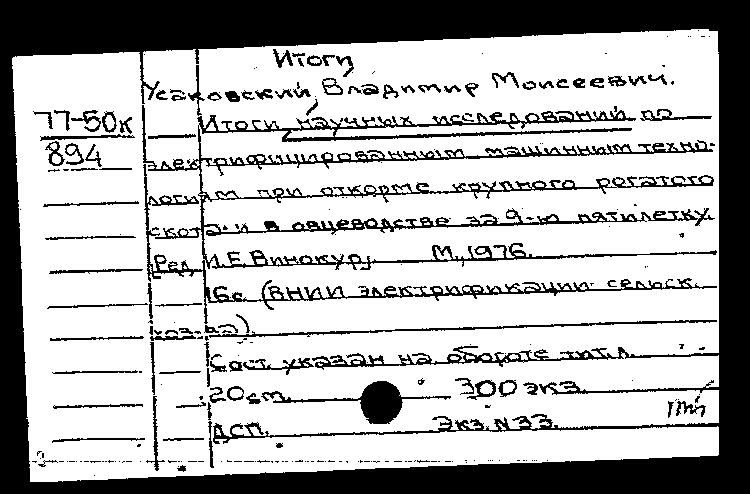 Итоги
Усаковский, Владимир Моисеевич.
77-50к
894
Итоги научных исследований по
электрифицированным машинным техно-
логиям при откорме крупного рогатого
скота и в овцеводстве за 9-ю пятилетку.
Ред. И.Е. Винокур, М., 1976.
16с. (ВНИИ электрификации сельск.
хоз-ва).
Сост. указан на обороте тит. л.
20см. 300 экз.
ДСП. Экз. N 33.